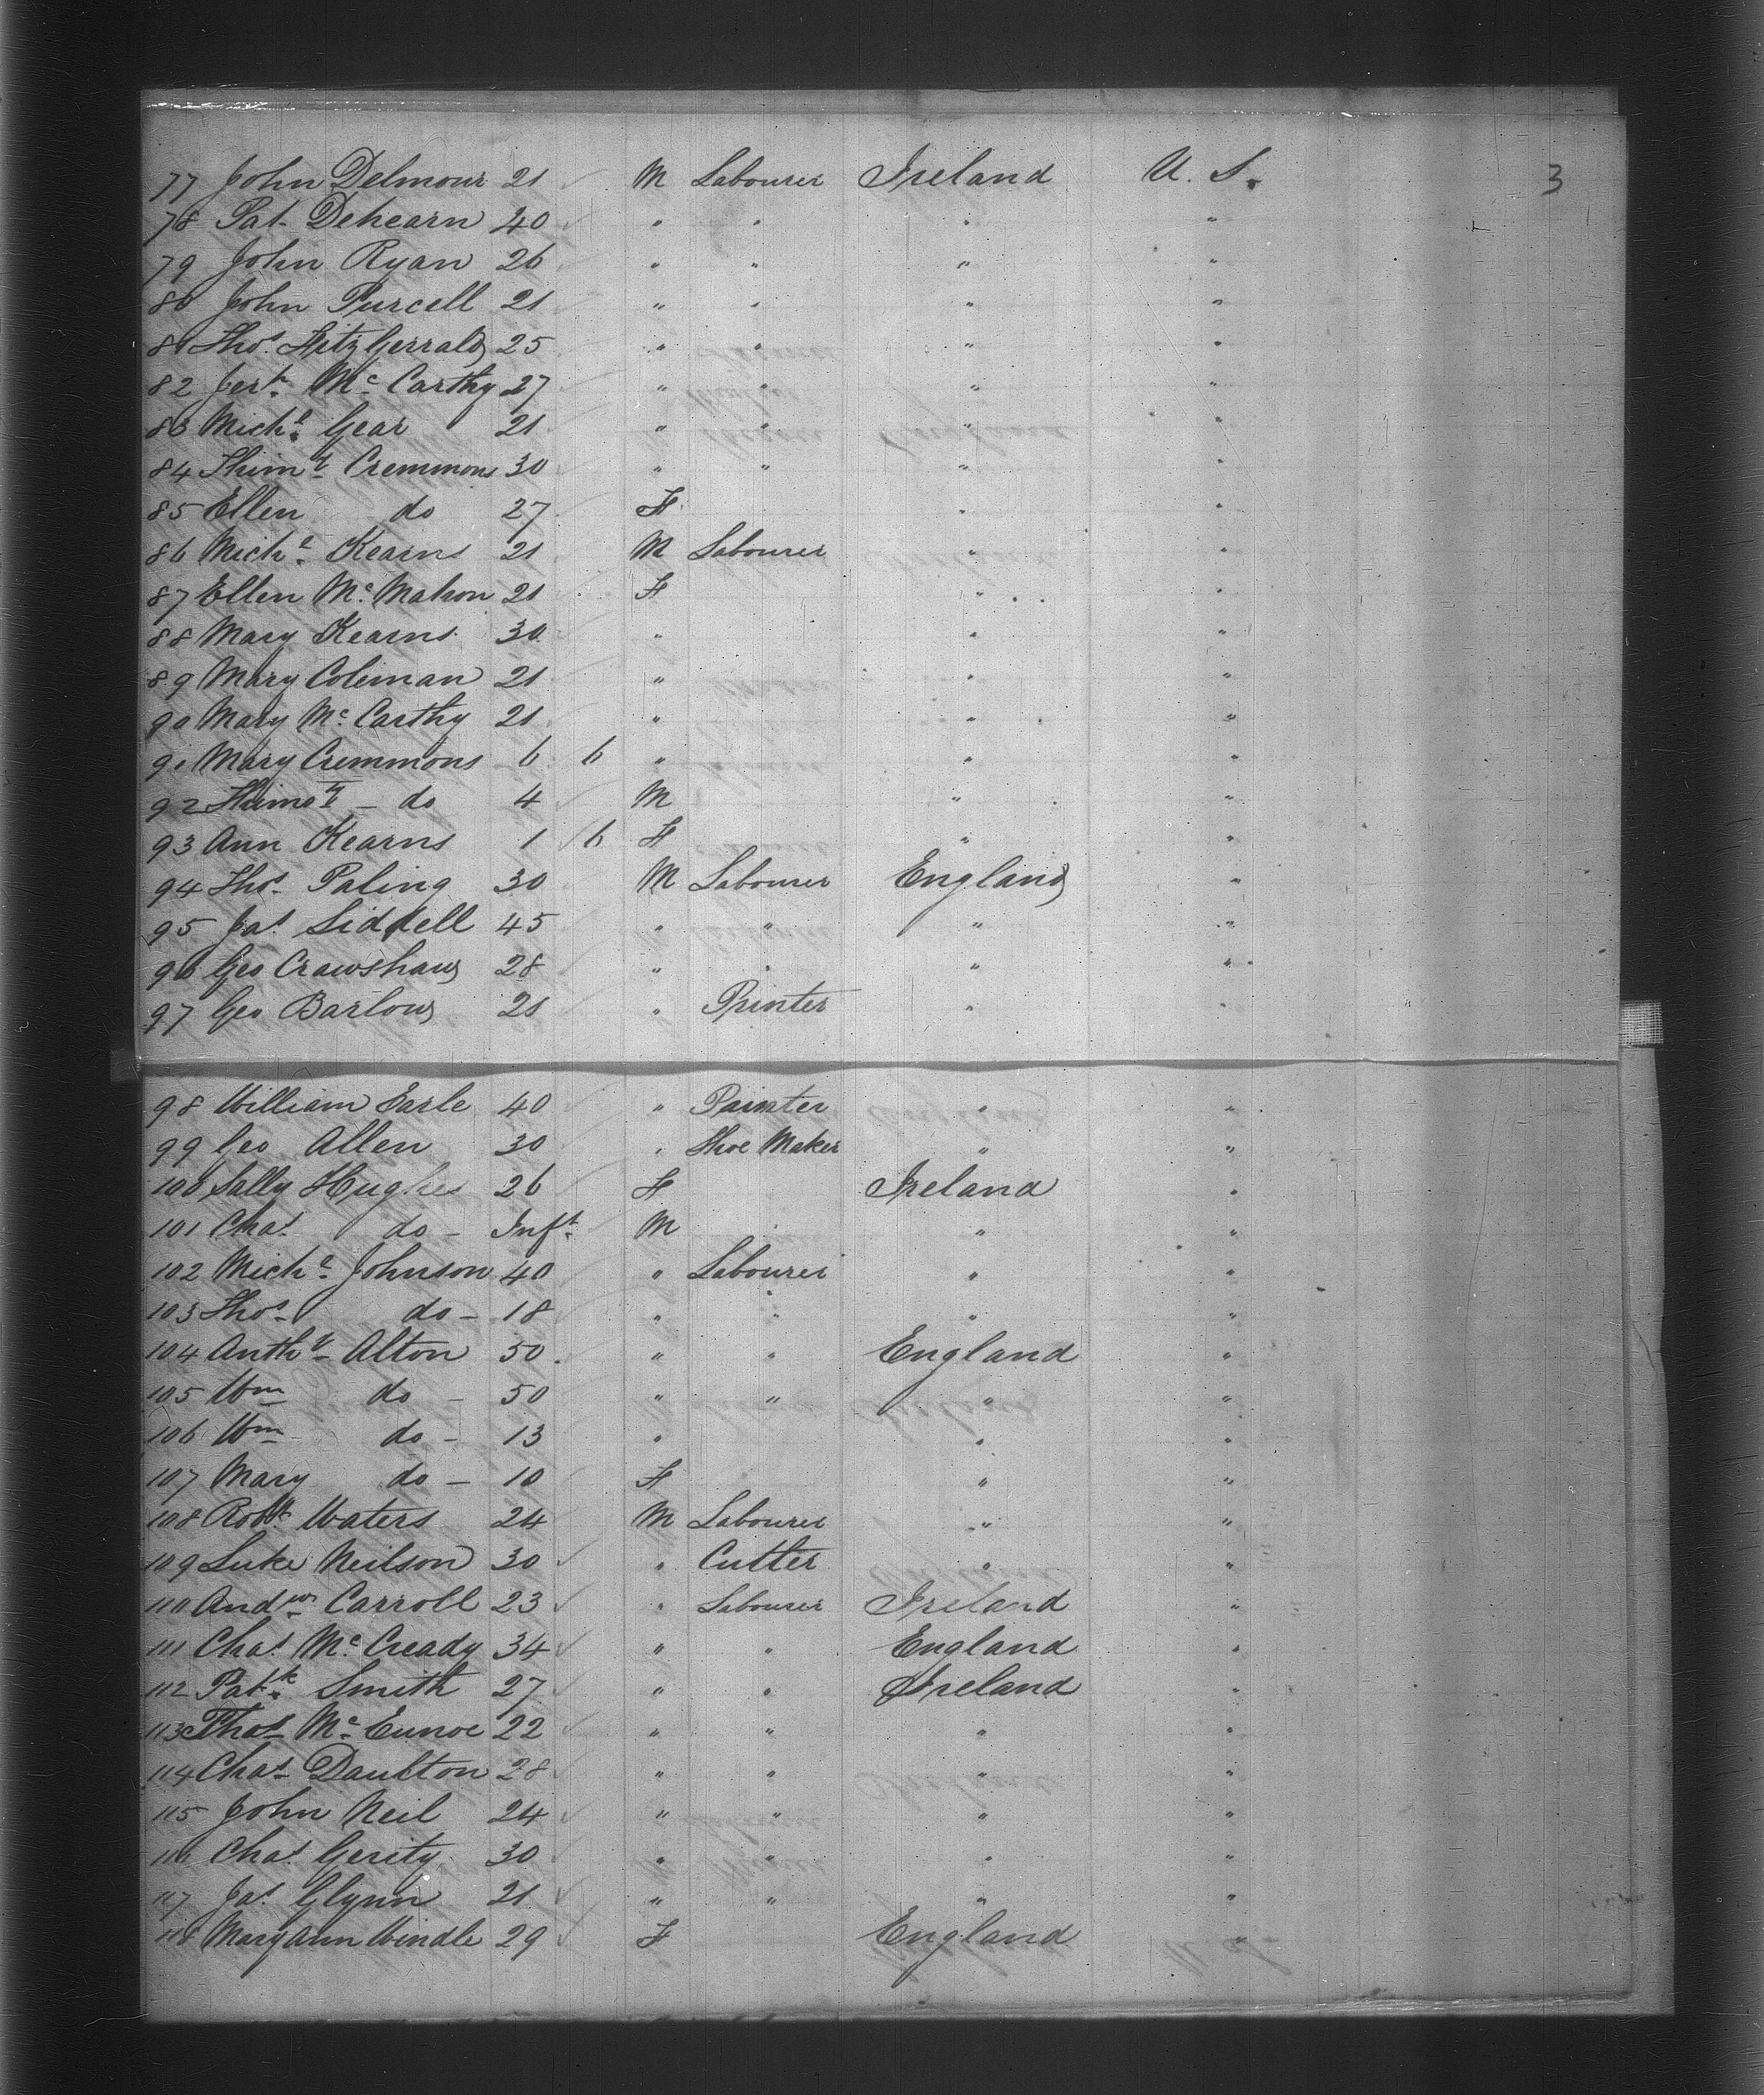 77 John Delmour 21 M Labourer Ireland U. S. 3
78 Pat. Dehearn 40 " " " "
79 John Ryan 26 " " " "
80 John Purcell 21 " " " "
81 Thos. Fitz Gerrald 25 " " " "
82 Jerh. Mc Carthy 27 " " " "
83 Michl. Gear 21 " " " "
84 Thimy Cremmons 30 " " " "
85 Ellen do 27 F " "
86 Michl. Kearns 21 M Labourer " "
87 Ellen Mc Mahon 21 F " "
88 Mary Kearns 30 " " "
89 Mary Coleman 21 " " "
90 Mary Mc Carthy 21 " " "
91 Mary Cremmons 6 6 " " "
92 Thimoy - do 4 M " "
93 Ann Kearns 1 6 F " "
94 Thos. Paling 30 M Labourer England "
95 Jas Siddell 45 " " " "
96 Geo Crawshaw 28 " " " "
97 Geo Barlow 21 " Printer " "
98 William Earle 40 " Painter " "
99 Geo Allen 30 " Shoe Maker " "
100 Sally Hughes 26 F Ireland "
101 Chas do - Inft. M " "
102 Michl. Johnson 40 " Labourer " "
103 Thos. do - 18 " " " "
104 Anthy Alton 50 " " England "
105 Wm do - 50 " " " "
106 Wm do - 13 " " "
107 Mary do - 10 F " "
108 Robt. Waters 24 M Labourer " "
109 Luke Neilson 30 " Cutter " "
110 Andw Carroll 23 " Labourer Ireland "
111 Chas Mc Cready 34 " " England "
112 Patk. Smith 27 " " Ireland "
113 Thos Mc Eunoe 22 " " " "
114 Chas Daulton 28 " " " "
115 John Neil 24 " " " "
116 Chas Gerity 30 " " " "
117 Jas Glynn 21 " " " "
118 Mary Ann Windle 29 F England "